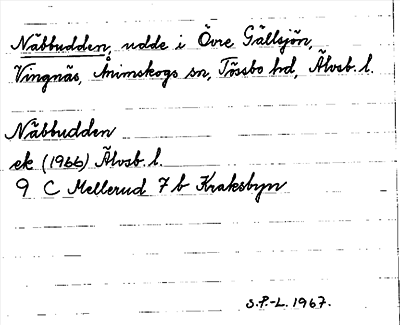 Näbbudden, udde i Övre Gällsjön,
Vingnäs, Ånimskogs sn, Tössbo hd, Älvsb. l.
Näbbudden
ek (1966) Älvsb. l.
9 C Mellerud 7 b Kraksbyn
S.P.-L. 1967.